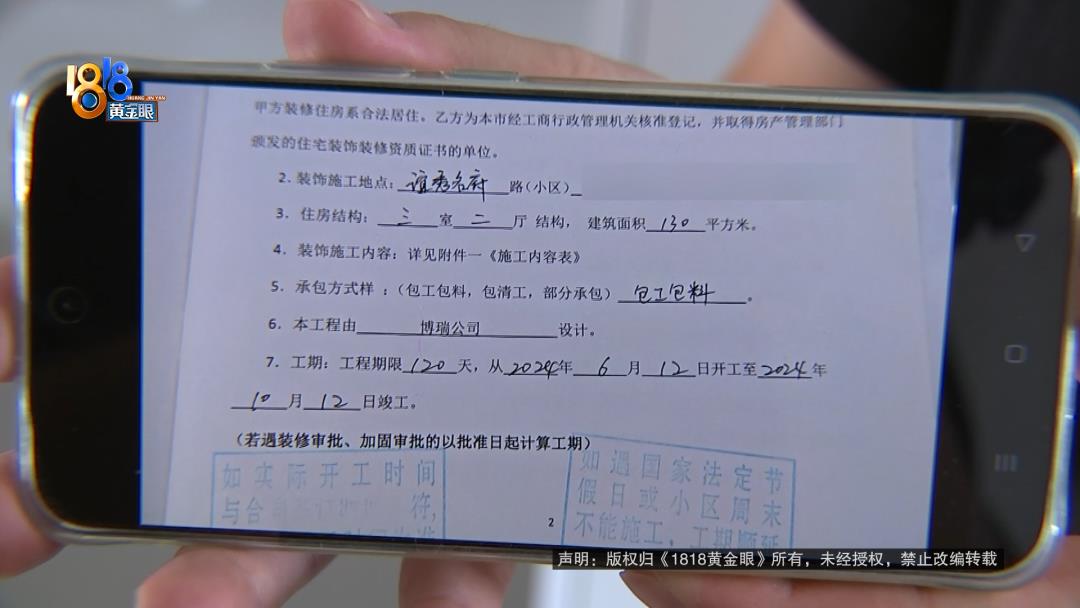 1818
HUANG JIN YAN
黄金眼
甲方装修住房系合法居住。乙方为本市经工商行政管理机关核准登记，并取得房产管理部门
颁发的住宅装饰装修资质证书的单位。
2.装饰施工地点：谊秀名府路(小区)
3．住房结构：三室二厅 结构， 建筑面积130平方米。
4．装饰施工内容：详见附件一《施工内容表》
5．承包方式样 ：（包工包料，包清工，部分承包）包工包料。
6．本工程由博瑞公司设计。
7．工期：工程期限120天，从2024年6月12日开工至2024年
10月12日竣工。
（若遇装修审批、加固审批的以批准日起计算工期）
如实际开工时间
与合 符,
如遇国家法定节
假日或小区周末
不能施工，工期顺延
2
声明：版权归《1818黄金眼》所有，未经授权，禁止改编转载